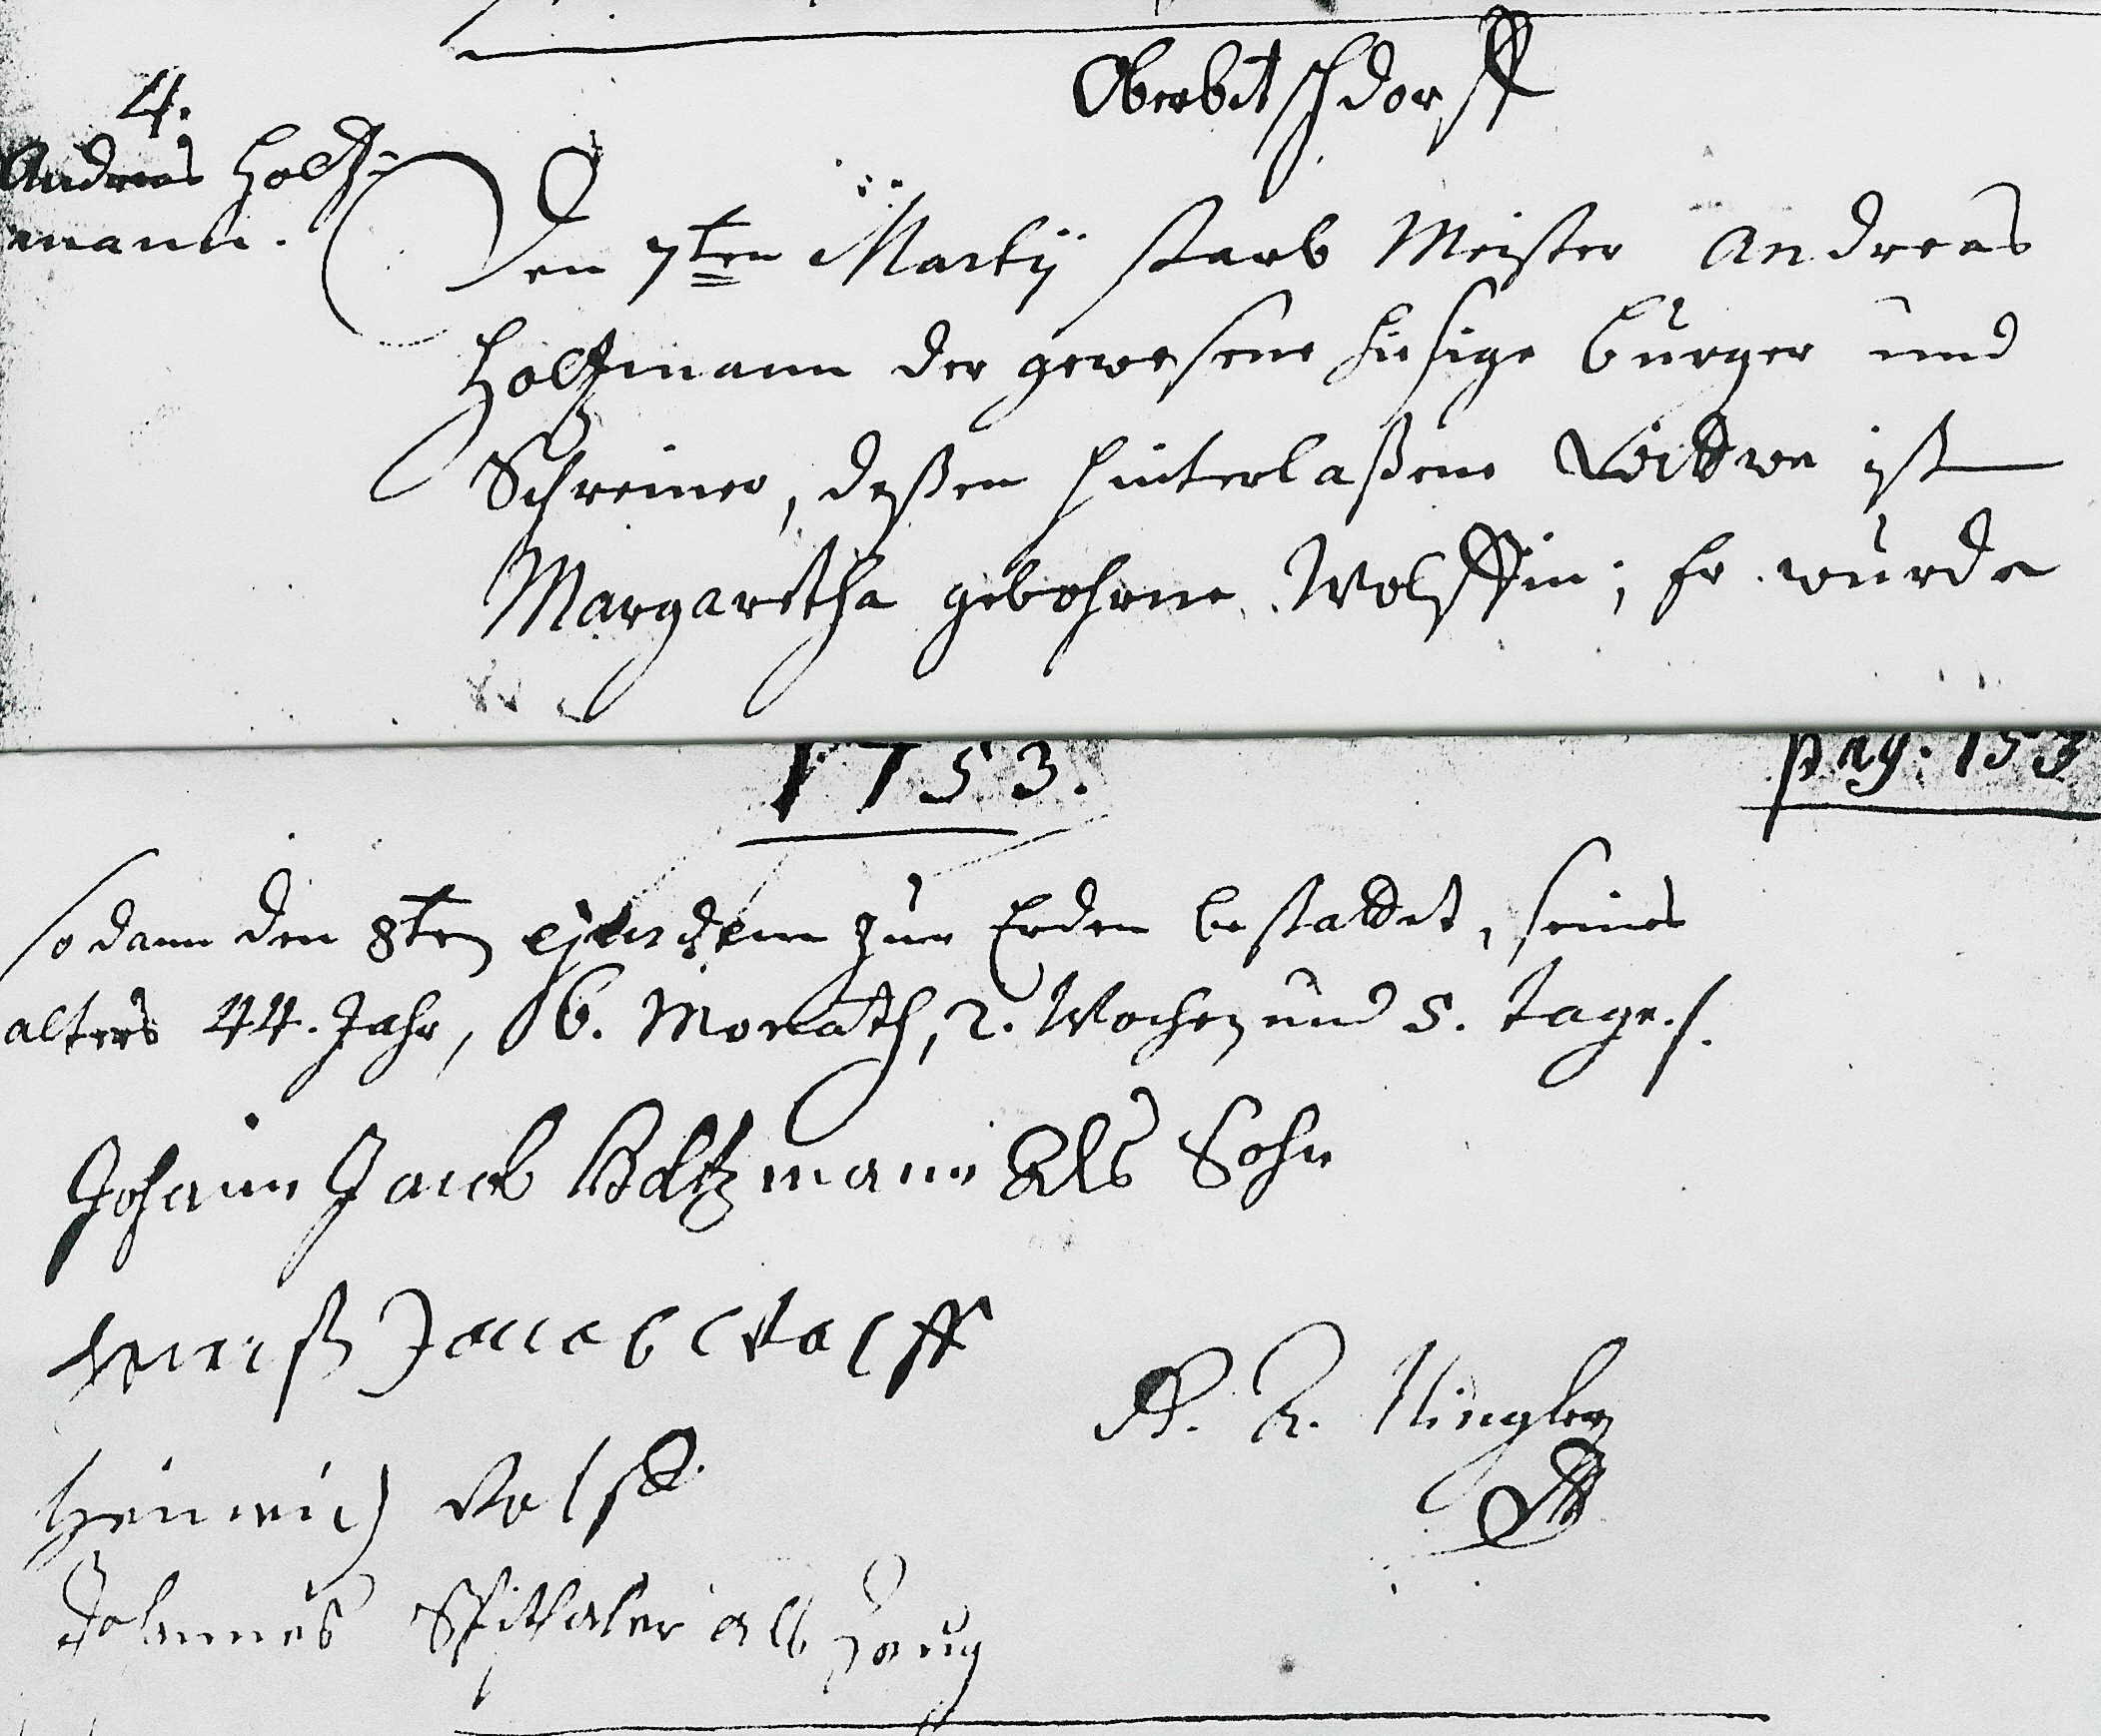 Oberbetschdorff
4.
Andreas Holtz-
mann.
Den 7ten Martij starb Meister Andreas
Holtzmann der gewesene hiesige burger und
Schreiner, deßen hinterlaßene Wittwe ist
Margaretha gebohrne Wolffin; Er wurde
1753.
pag: 153
sodann den 8ten ejusdem zur Erden bestattet, seines
alters 44. Jahr, 6. Monath, 2. Wochen und 5. Tage./.
Johann Jacob Holtzmann Als Sohn
Jacob Wolff
Heinrich Wolff
Johannes Spithaler als Zeug